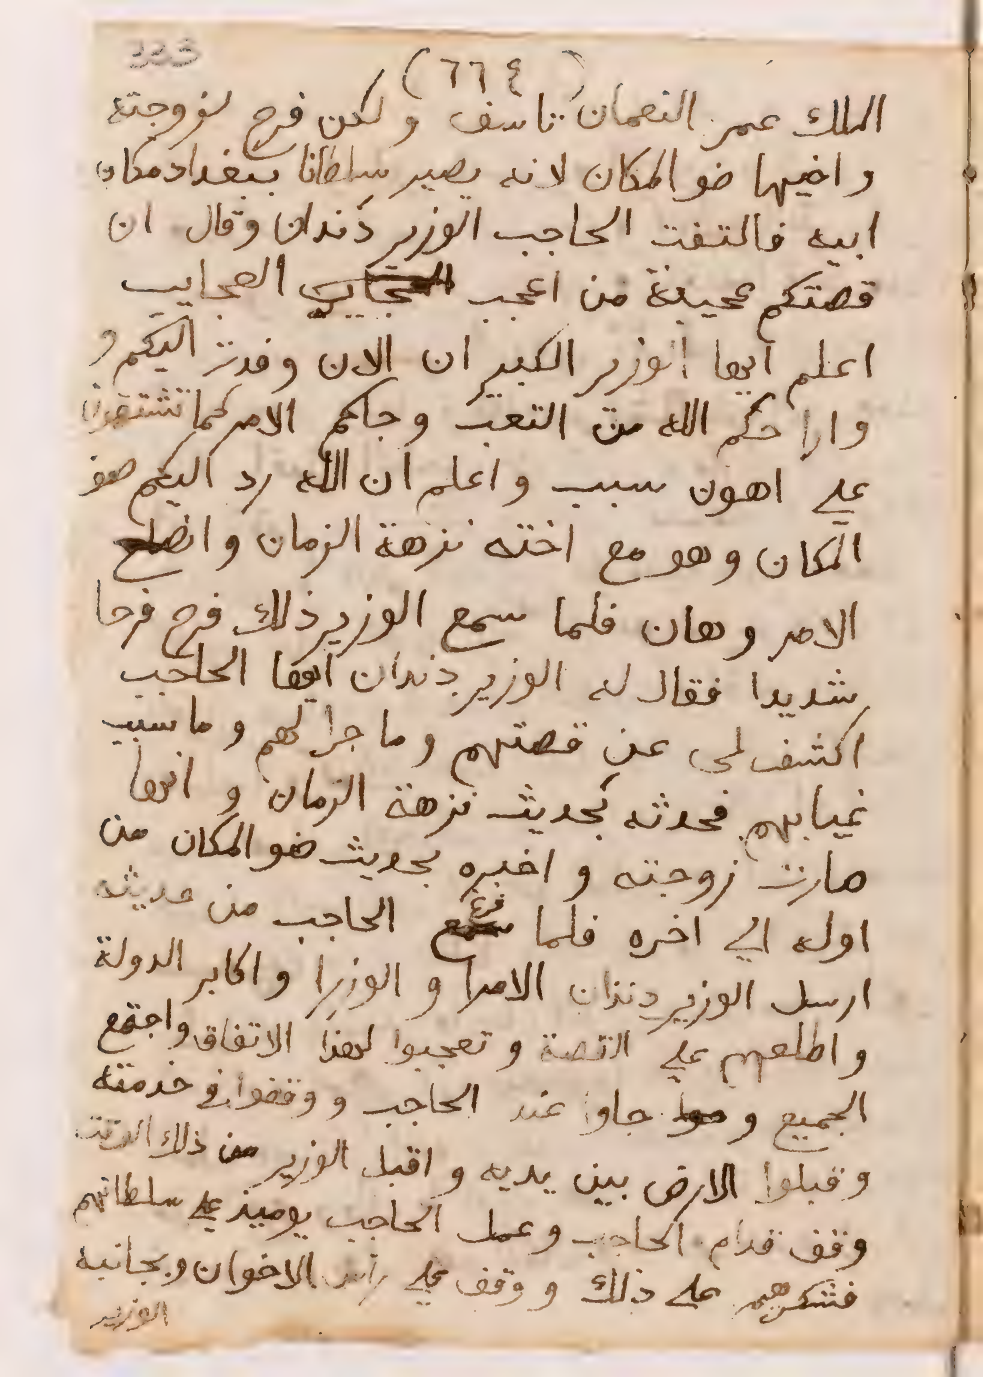 333
(٦٦٤)
الملك عمر النعمان تاسف ولكن فرح لزوجته
واخيها ضو المكان لانه يصير سلطانا ببغداد مكان
ابيه فالتفت الحاجب الوزير دندان وقال ان
قصتكم عجيبة من اعجب العجايب
اعلم ايها الوزير الكبير ان الان وفدت اليكم و
واراحكم الله من التعب وجاكم الامر كما تشتهون
علي اهون سبب واعلم ان الله رد اليكم ضو
المكان وهو مع اخته نزهة الزمان وانصلح
الامر وهان فلما سمع الوزير ذلك فرح فرحا
شديدا فقال له الوزير دندان ايها الحاجب
اكشف لي عن قصتهم وما جرا لهم وما سبب
غيابهم فحدثه بحديث نزهة الزمان و انها
صارت زوجته و اخبره بحديث ضو المكان من
اوله الي اخره فلما فرغ الحاجب من حديثه
ارسل الوزير دندان الامرا و الوزرا واكابر الدولة
واطلعهم علي القصة و تعجبوا لهذا الاتفاق واجتمع
الجميع و جاوا عند الحاجب و وقفوا في خدمته
وقبلوا الارض بين يديه واقبل الوزير من ذلك الوقت
وقف قدام الحاجب وعمل الحاجب يوميذ علي سلطانهم
فشكرهم علي ذلك و وقف علي راس الاخوان وبجانبه
الوزير